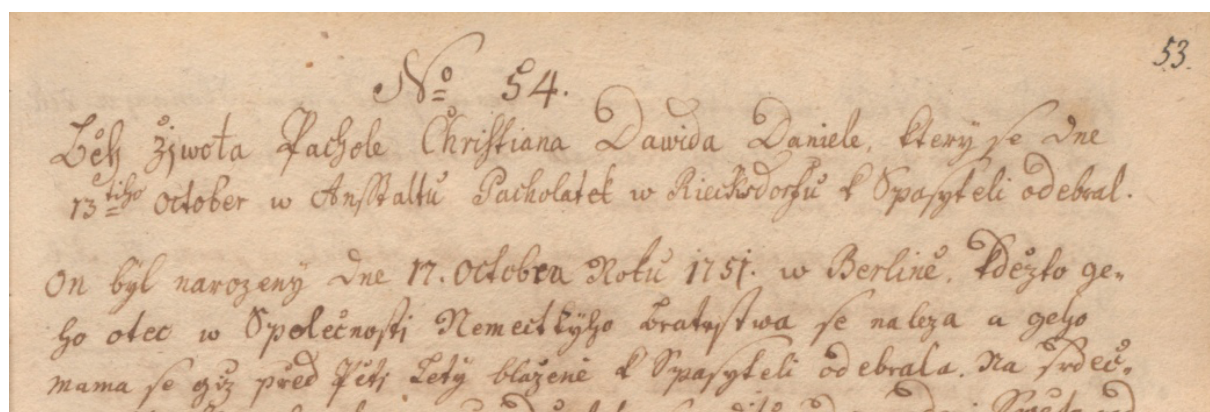 53.
No 54.
Běh žiwota Pachole Christiana Dawida Daniele, který se dne
13tiho October w Anstaltu Pacholatek w Rieckdorfu k Spasyteli odebral.
On był narozený dne 17. Octobra Roku 1751. w Berlině, kdežto ge-
ho otec w Společnosti Nemeckýho Bratrstwa se naleza a geho
mama se giž před Pěti Lety blaženě k Spasyteli odebrala. Na srdeč-